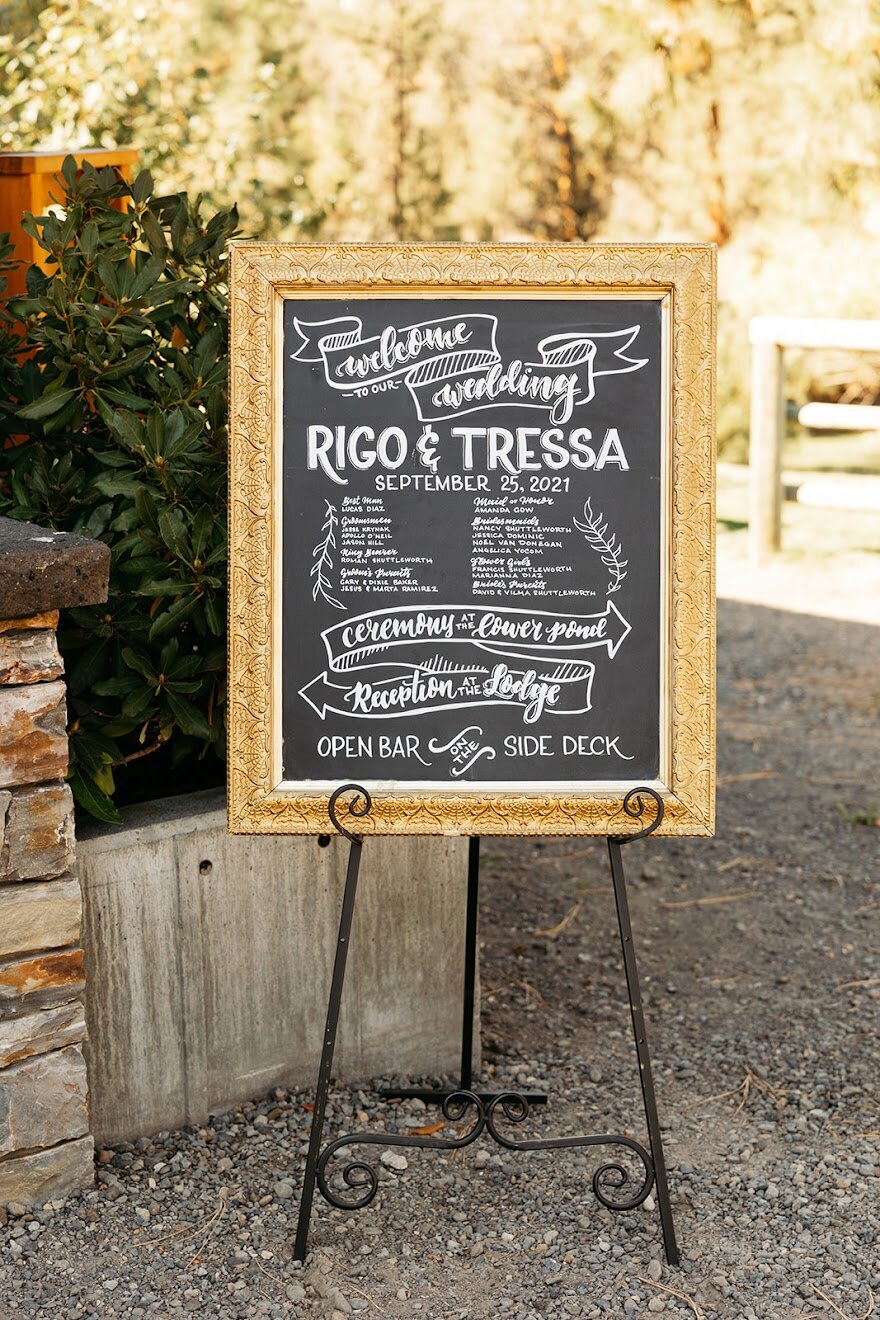 welcome
-TO OUR-
wedding
RIGO & TRESSA
SEPTEMBER 25, 2021
Best Man
LUCAS DIAZ
Groomsmen
JESSE KRYNAK
APOLLO O'NEIL
JASON HILL
Ring Bearer
ROMAN SHUTTLEWORTH
Groom's Parents
GARY & DIXIE BAKER
JESUS & MARTA RAMIREZ
Maid of Honor
AMANDA GOW
Bridesmaids
NANCY SHUTTLEWORTH
JESSICA DOMINIC
NOEL VAN DONEGAN
ANGELICA YOCOM
Flower Girls
FRANCIS SHUTTLEWORTH
MARIANNA DIAZ
Bride's Parents
DAVID & VILMA SHUTTLEWORTH
ceremony AT THE Lower pond
Reception AT THE Lodge
OPEN BAR ON THE SIDE DECK